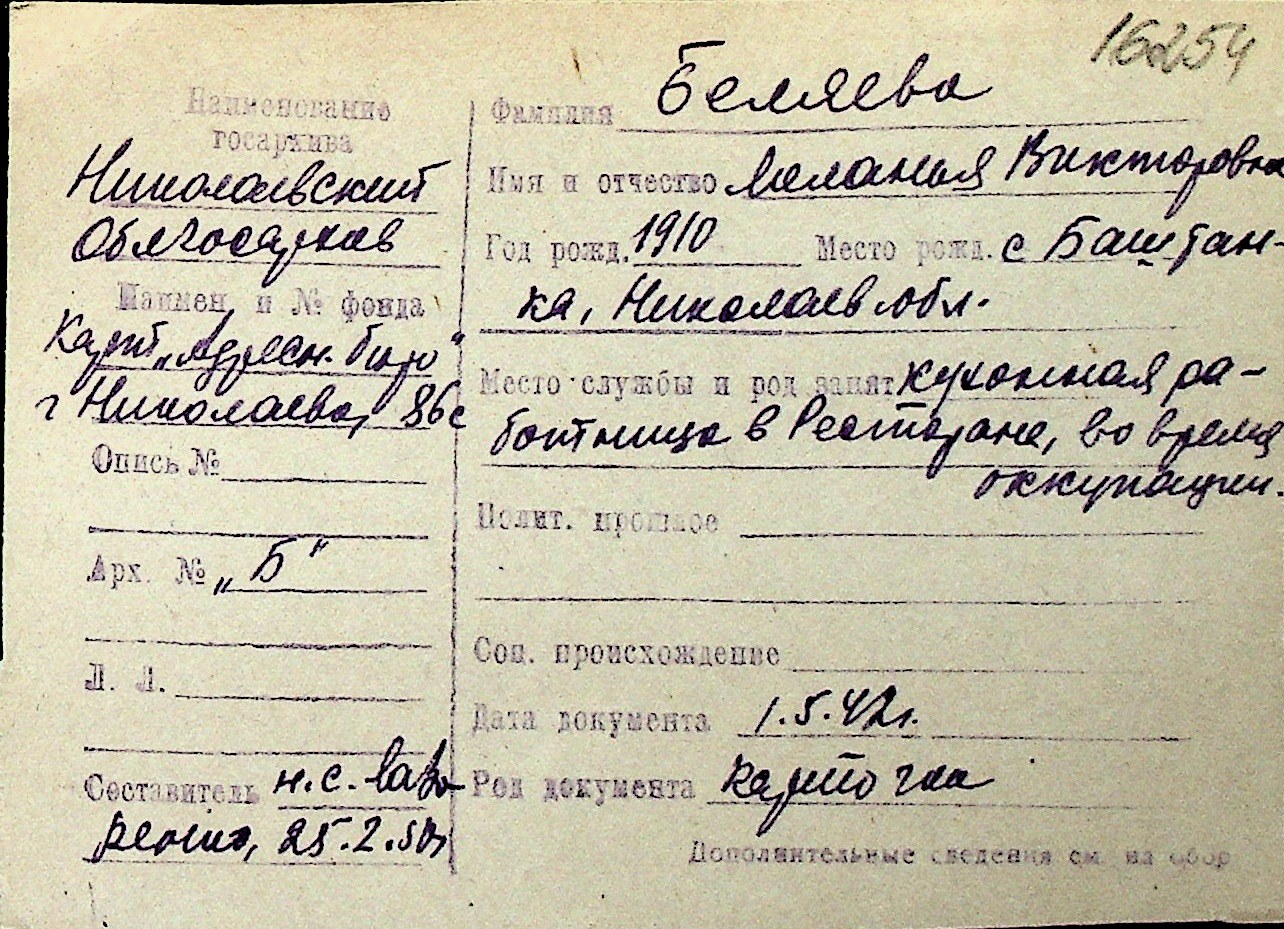 16254
Наименование
госархива
Николаевский
Облгосархив
Наимен. и № фонда
Карт. „Адресн. бюро"
г Николаева, 86с
Опись №
Арх. № „Б"
Л. Л.
Составитель н.с.
25.2.50г
Фамилия Беляева
Имя и отчество Меланья Викторовна
Год рожд. 1910 Место рожд. с Баштан-
ка, Николаев обл.
Место службы и род занят кухонная ра-
ботница в Ресторане, во время
оккупации.
Полит. прошлое
Соц. происхождение
Дата документа 1.5.42г.
Род документа карточка
Дополнительные сведения см. на обор